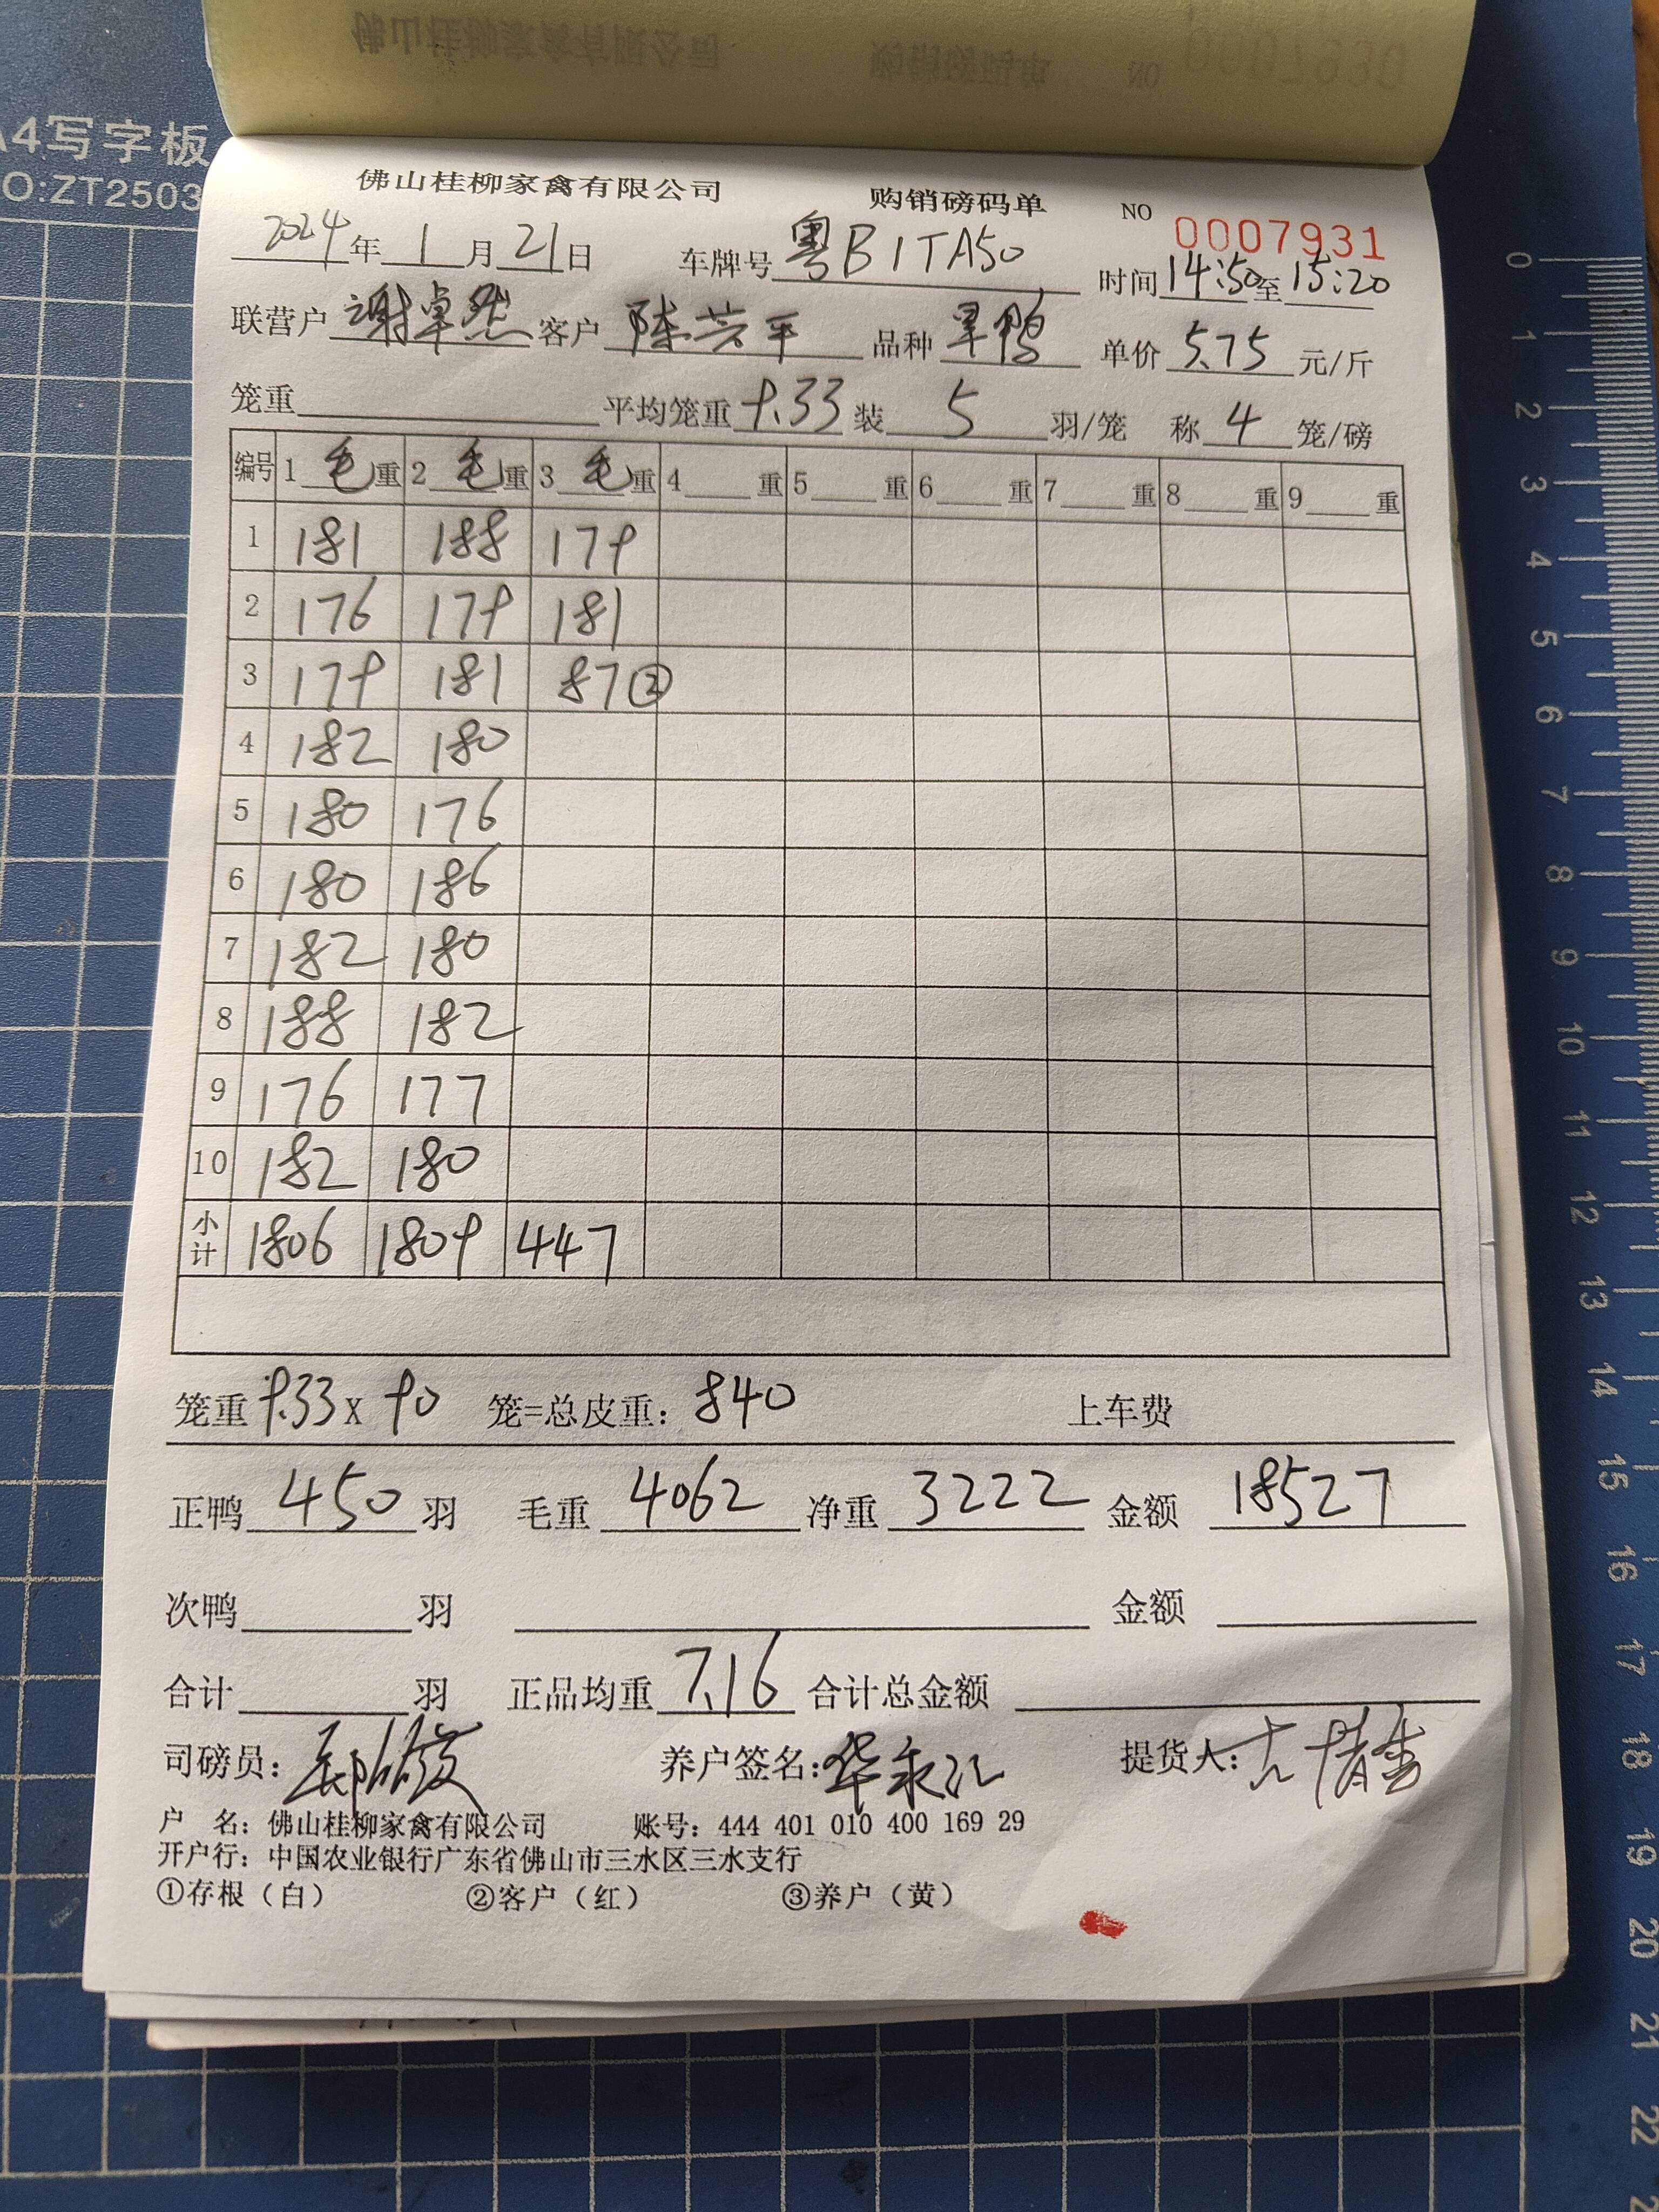 A4写字板
NO:ZT2503
佛山桂柳家禽有限公司 购销磅码单 NO 0007931
2024年1月21日 车牌号粤B1TA50 时间14:50至15:20
联营户谢卓然 客户陈芳平 品种旱鸭 单价5.75元/斤
笼重 平均笼重9.33装5羽/笼 称4笼/磅
编号 1毛重 2毛重 3毛重 4重 5重 6重 7重 8重 9重
1 181 188 179
2 176 179 181
3 179 181 87②
4 182 180
5 180 176
6 180 186
7 182 180
8 188 182
9 176 177
10 182 180
小计 1806 1809 447
笼重9.33x90笼=总皮重:840 上车费
正鸭450羽 毛重4062净重3222金额18527
次鸭 羽 金额
合计 羽 正品均重7.16合计总金额
司磅员: 养户签名: 提货人:
户 名:佛山桂柳家禽有限公司 账号:444 401 010 400 169 29
开户行:中国农业银行广东省佛山市三水区三水支行
①存根(白) ②客户(红) ③养户(黄)
0
1
2
3
4
5
6
7
8
9
10
11
12
13
14
15
16
17
18
19
20
21
22